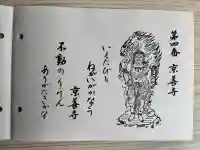 第四番 京善寺
いくたびも
ねがいがかなう
京善寺
不動のりやく
ありがたきかな